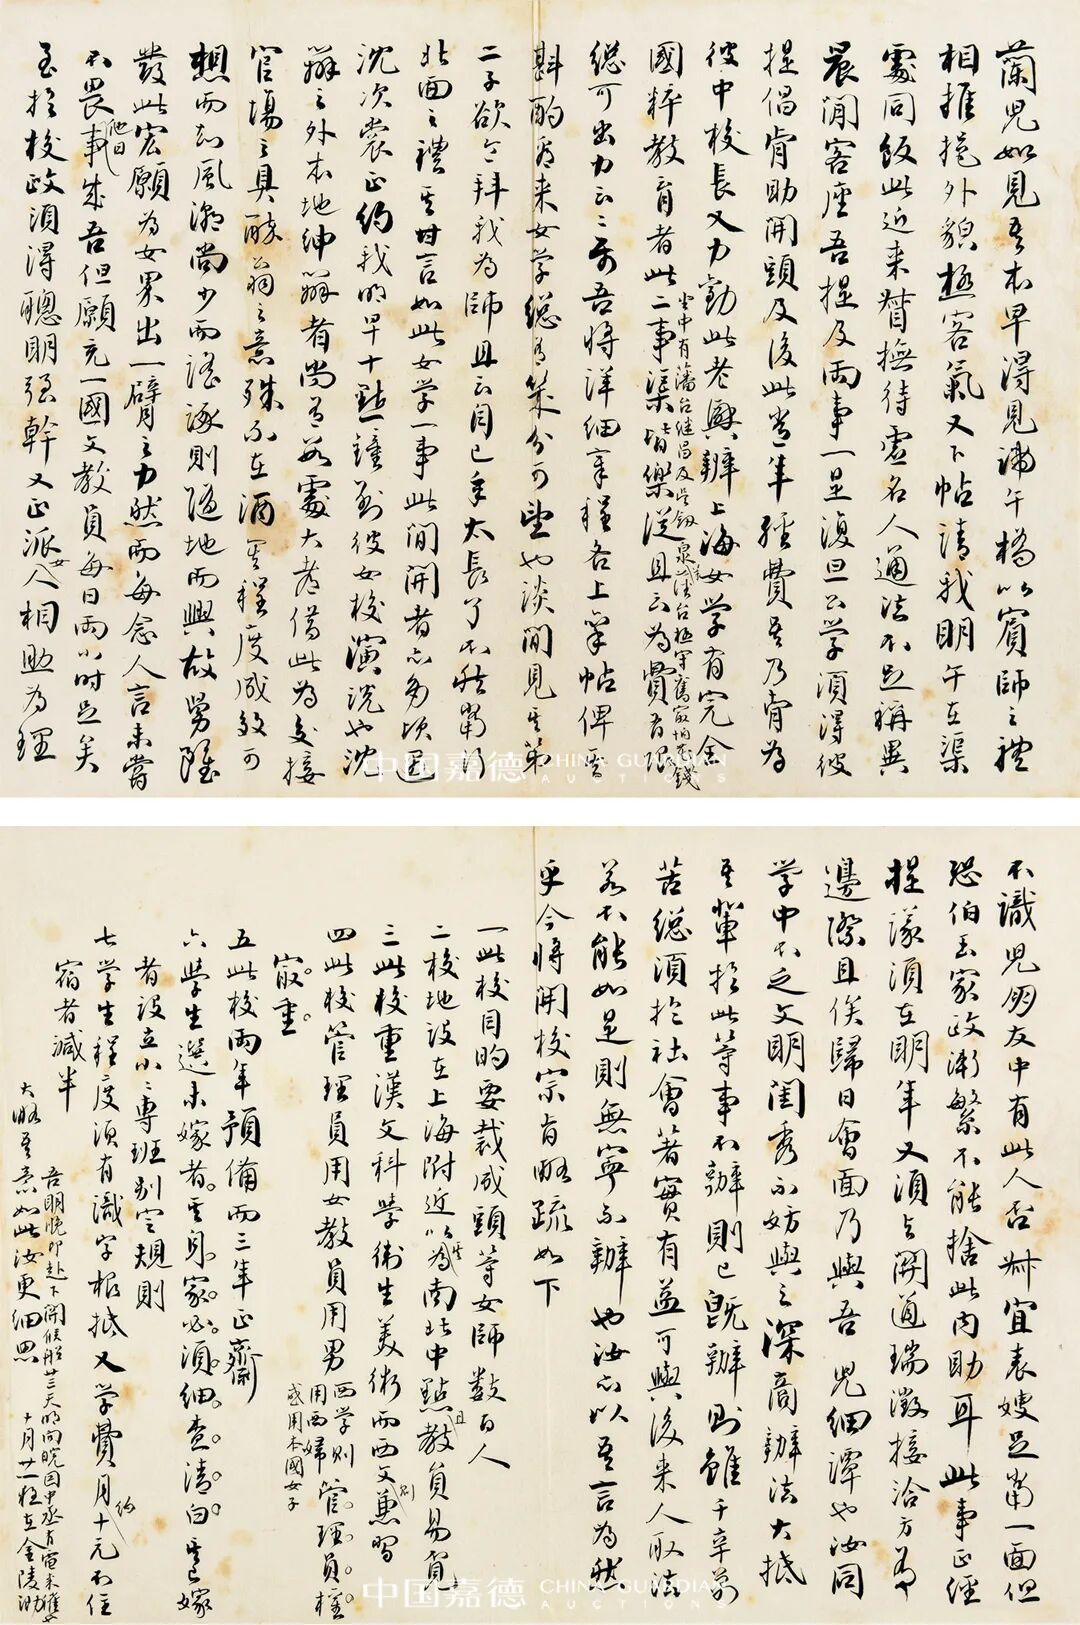 蘭兒如見吾本早得見諦午橋以賓師之禮
相推挹外貌極客氣又下帖請我明午在渠
處同飯此近來督撫待虛名人通法不足稱異
晨間客座吾提及兩事一是復旦公学須得彼
提倡肯助開頭及後此常年經費吾乃肯為
彼中校長又力勸此老興辦上海女学有完全
國粹教育者此二事渠皆樂從且云為費有限
坐中有藩台繼昌及学
總可出力云云前吾將詳細章程各上筆帖俾
斟酌看来女学總有幾分可望也談間見其第
二子欲令拜我為師且云自己年太長了不然當行
北面之禮其甘言如此女学一事此間開者亦多昨
沈次裳正約我明早十點鐘到彼女校演說也沈
辦之外本地紳辦者尚有數處大都借此為交接
官場之具醉翁之意殊不在酒其程度成效可
想而知風潮尚少而謠諑則隨地而興故吾雖
發此宏願為女界出一臂之力然而每念人言未嘗
不畏他日事成吾但願充一國文教員每日兩小時足矣
至於校政須得聰明強幹又正派女人相助為理
不識兒朋友中有此人否叔宜表嫂足當一面但
恐伯玉家政漸繁不能捨此內助耳此事正經
提議須在明年又須與關道瑞澂接洽方有
邊際且俟歸日會面乃與吾兒細譚也汝同
学中不乏文明閨秀不妨與之深商辦法大抵
吾輩於此等事不辦則已既辦則雖千辛萬
苦總須於社會著實有益可與後来人取法
若不能如是則無寧不辦也汝亦以吾言為然
乎今將開校宗旨略疏如下
一此校目的要裁成頭等女師數百人
二校地設在上海附近以其為南北中點且教員易覓
三此校重漢文科学衛生美術而西文則兼習
四此校管理員用女教員用男西学則用西婦或用本國女子管理員權
最重
五此校兩年預備而三年正齋
六學生選未嫁者其身家必須細查清白其已嫁
者設立小小專班別定規則
七学生程度須有識字根抵又学費月約十元不住
宿者減半
大略吾意如此汝更細思
吾明晚即赴下關候船廿三天明向皖因中丞有電来催也
十月廿一夜在金陵泐
中国嘉德 CHINA GUARDIAN AUCTIONS
中国嘉德 CHINA GUARDIAN AUCTIONS